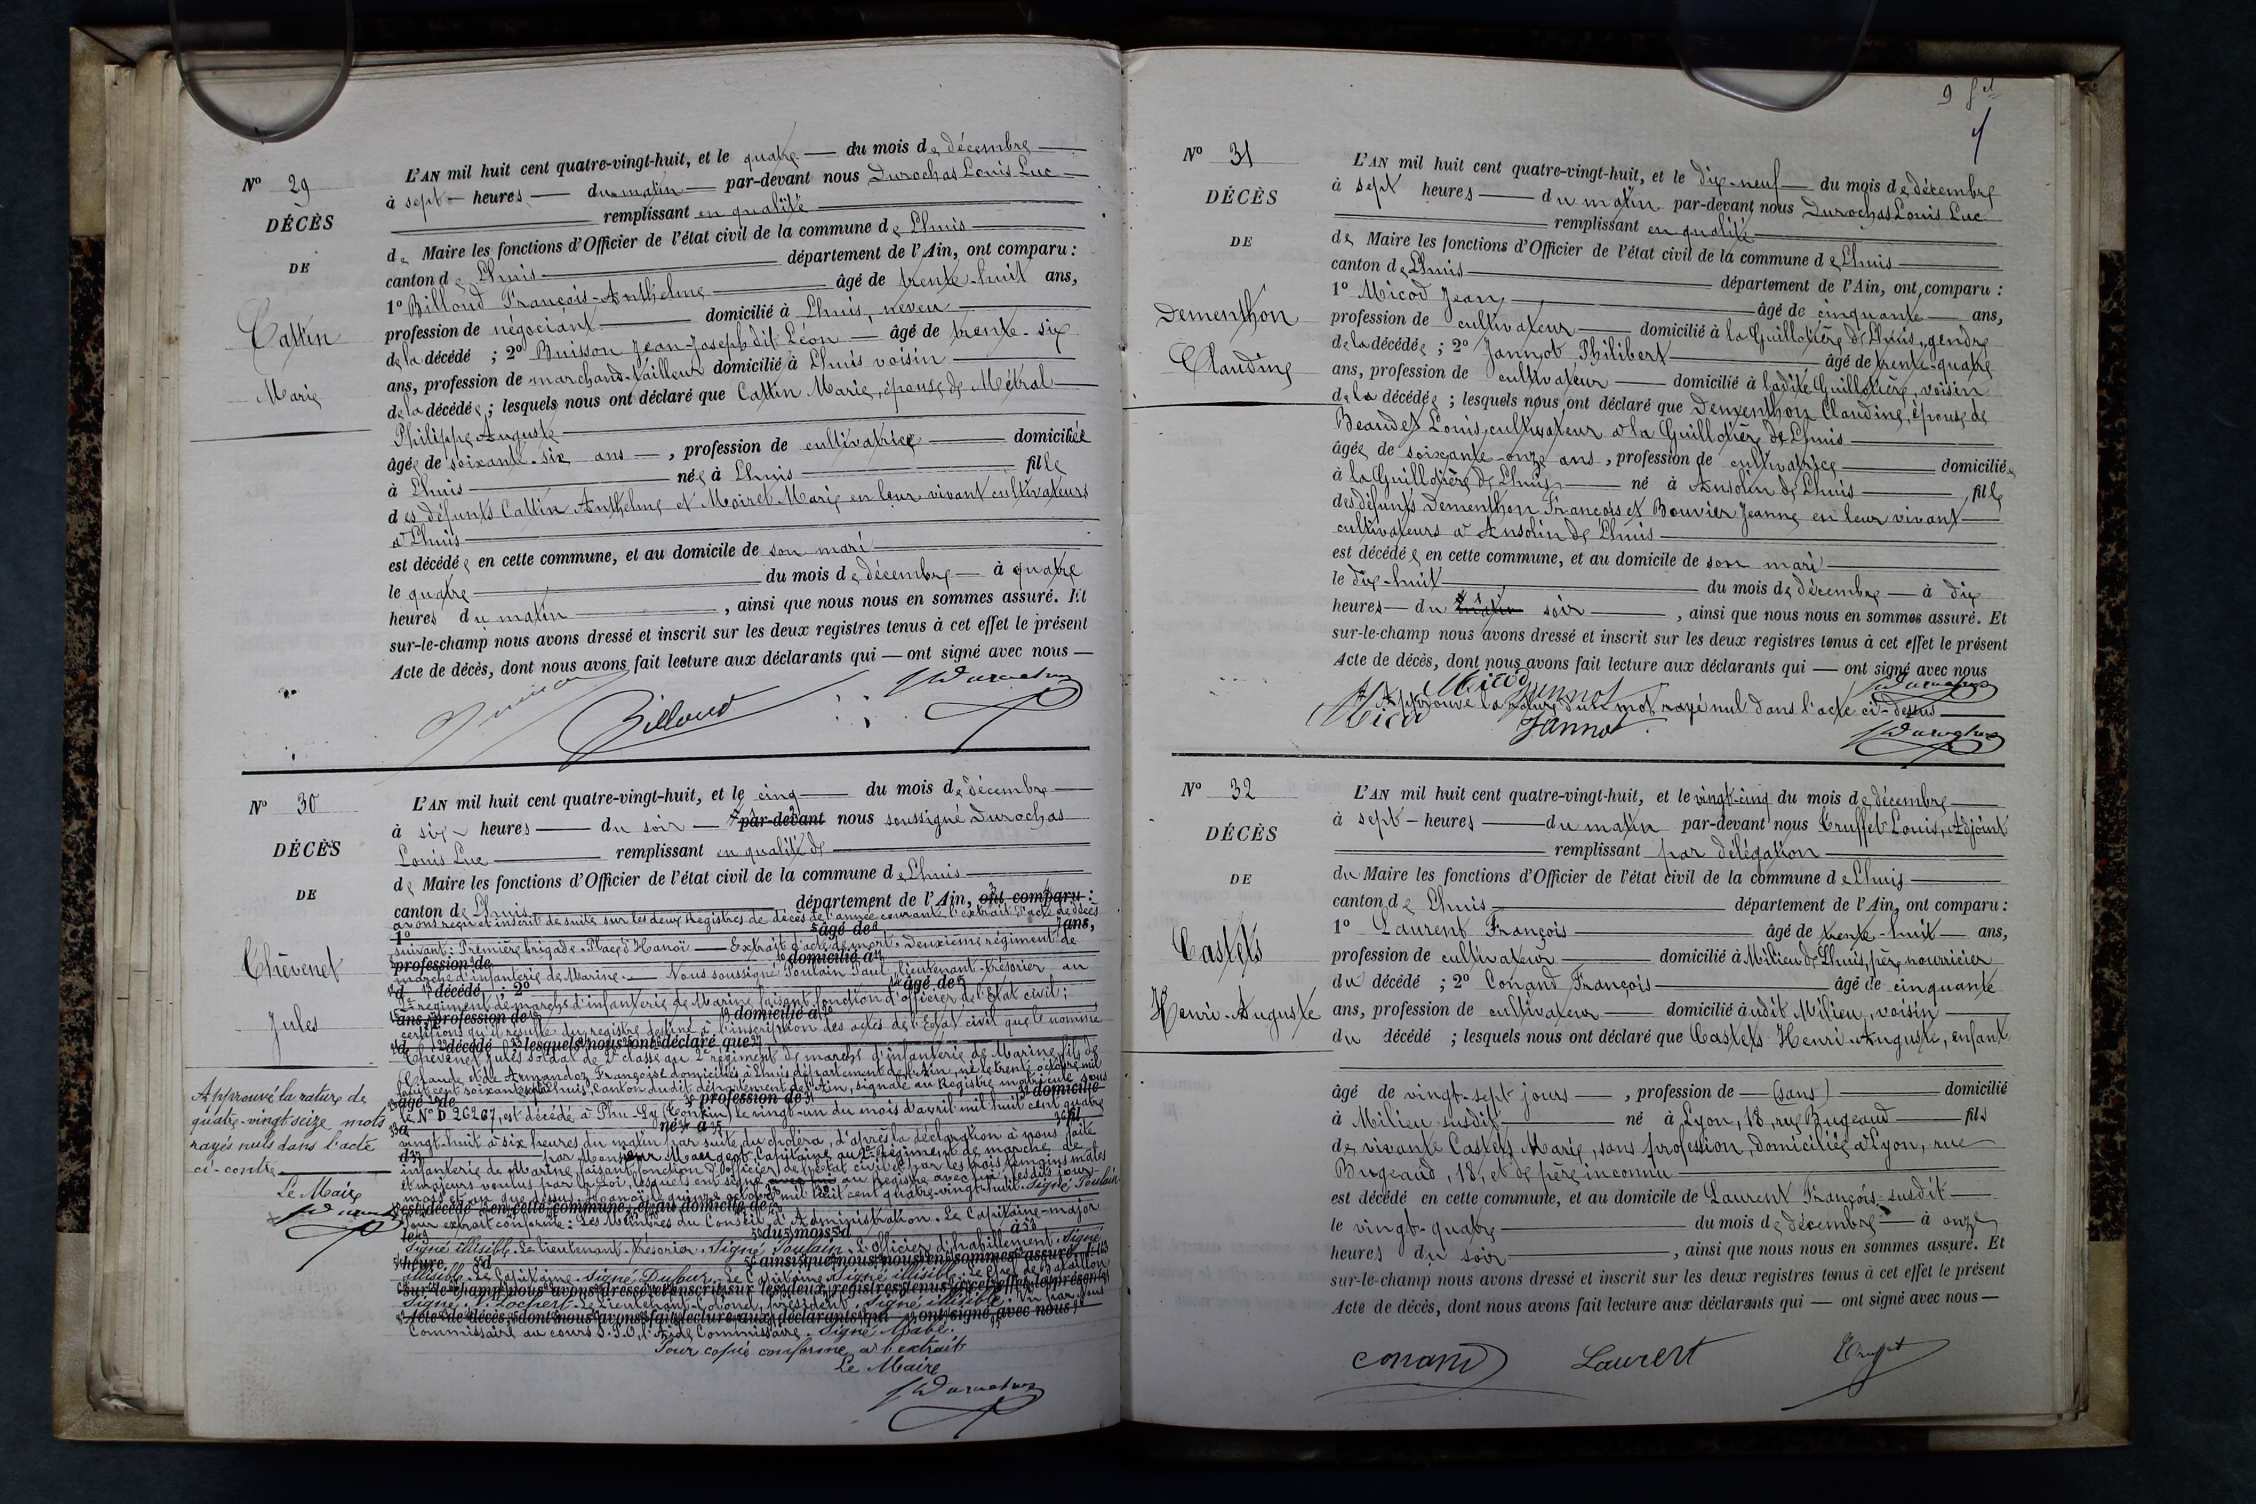 Nº 29
DÉCÈS
DE
Cattin
Marie
L'AN mil huit cent quatre-vingt-huit, et le quatre du mois de décembre
à sept heures du matin par-devant nous Durochas Louis Luc
remplissant en qualité
de Maire les fonctions d'Officier de l'état civil de la commune de Lhuis
canton de Lhuis département de l'Ain, ont comparu :
1º Billoud François-Anthelme âgé de trente-huit ans,
profession de négociant domicilié à Lhuis, neveu
de la décédé ; 2º Buisson Jean-Joseph dit Léon âgé de trente-six
ans, profession de marchand-tailleur domicilié à Lhuis voisin
de la décédée ; lesquels nous ont déclaré que Cattin Marie, épouse de Métral
Philippe Auguste
âgée de soixante-six ans, profession de cultivatrice domiciliée
à Lhuis née à Lhuis fille
des défunts Cattin Anthelme et Moiret Marie en leur vivant cultivateurs
à Lhuis
est décédée en cette commune, et au domicile de son mari
le quatre du mois de décembre à quatre
heures du matin, ainsi que nous nous en sommes assuré. Et
sur-le-champ nous avons dressé et inscrit sur les deux registres tenus à cet effet le présent
Acte de décès, dont nous avons fait lecture aux déclarants qui ont signé avec nous
Billoud
Nº 30
DÉCÈS
DE
Chèvenet
Jules
Approuvé la rature de
quatre-vingt seize mots
rayés nuls dans l'acte
ci-contre
Le Maire
L'AN mil huit cent quatre-vingt-huit, et le cinq du mois de décembre
à six heures du soir par-devant nous soussigné Durochas
Louis Luc remplissant en qualité de
de Maire les fonctions d'Officier de l'état civil de la commune de Lhuis
canton de Lhuis département de l'Ain, ont comparu :
avons reçu et inscrit de suite sur les deux Registres de décès de l'année courante l'extrait d'acte de décès
1º âgé de ans,
suivant : Première brigade. Place d'Hanoï Extrait d'acte de mort. Deuxième régiment de
profession de domicilié à
marche d'infanterie de Marine. Nous soussigné Poulain Paul, lieutenant-trésorier au
d décédé ; 2º âgé de
2e régiment de marche d'infanterie de Marine faisant fonction d'officier de l'Etat civil ;
ans, profession de domicilié à
certifions qu'il résulte du registre destiné à l'inscription des actes de l'Etat civil que le nommé
d décédé ; lesquels nous ont déclaré que
Chèvenet Jules soldat de 2e classe au 2e régiment de marche d'infanterie de Marine, fils de
Claude et de Armandoz Françoise domiciliés à Lhuis département de l'Ain, né le trente octobre mil
huit cent soixante à Lhuis, Canton dudit département de l'Ain, signalé au Registre matricule sous
âgé de profession de domicilié
le Nº D 26267, est décédé à Phu-Ly (Tonkin) le vingt-un du mois d'avril mil huit cent quatre
à né à fil
vingt-huit à six heures du matin par suite du choléra, d'après la déclaration à nous faite
par Monsieur Maugeot Capitaine au 2e Régiment de marche de
infanterie de Marine, faisant fonction d'officier de l'état civil et par les trois témoins mâles
et majeurs voulus par la Loi, lesquels ont signé au registre avec les dits jour
mois et an que dessus. Hanoï le quinze octobre mil huit cent quatre-vingt-huit. Signé Poulain
est décédé en cette commune, et au domicile de
Pour extrait conforme : Les Membres du Conseil d'Administration. Le Capitaine-major
le du mois d à
Signé illisible. Le lieutenant-trésorier. Signé Poulain. L'officier d'habillement. Signé
heure d ainsi que nous nous en sommes assuré. Et
illisible. Le Capitaine signé Dufour. Le Capitaine Signé illisible. Le Chef de Bataillon
sur-le-champ nous avons dressé et inscrit sur les deux registres tenus à cet effet le présent
Signé Lochert. Le Lieutenant-Colonel, président. Signé illisible. Vu par nous
Acte de décès, dont nous avons fait lecture aux déclarants qui ont signé avec nous
Commissaire au cours l'Aide Commissaire. Signé
Pour copie conforme à l'extrait
Le Maire
Nº 31
DÉCÈS
DE
Dementhon
Claudine
L'AN mil huit cent quatre-vingt-huit, et le dix-neuf du mois de décembre
à sept heures du matin par-devant nous Durochas Louis Luc
remplissant en qualité
de Maire les fonctions d'Officier de l'état civil de la commune de Lhuis
canton de Lhuis département de l'Ain, ont comparu :
1º Micod Jean âgé de cinquante ans,
profession de cultivateur domicilié à la Guillotière de Lhuis, gendre
de la décédée ; 2º Jannot Philibert âgé de trente-quatre
ans, profession de cultivateur domicilié à ladite Guillotière, voisin
de la décédée ; lesquels nous ont déclaré que Dementhon Claudine, épouse de
Beaudet Louis, cultivateur à la Guillotière de Lhuis
âgée de soixante-onze ans, profession de cultivatrice domiciliée
à la Guillotière de Lhuis né à Ansolin de Lhuis fille
des défunts Dementhon François et Bouvier Jeanne en leur vivant
cultivateurs à Ansolin de Lhuis
est décédée en cette commune, et au domicile de son mari
le dix-huit du mois de décembre à dix
heures du matin soir, ainsi que nous nous en sommes assuré. Et
sur-le-champ nous avons dressé et inscrit sur les deux registres tenus à cet effet le présent
Acte de décès, dont nous avons fait lecture aux déclarants qui ont signé avec nous
Micod Jannot
Approuvé la rature d'un mot rayé nul dans l'acte ci-dessus
Micod Jannot
Nº 32
DÉCÈS
DE
Castels
Henri-Auguste
L'AN mil huit cent quatre-vingt-huit, et le vingt-cinq du mois de décembre
à sept heures du matin par-devant nous Truffet Louis, Adjoint
remplissant par délégation
du Maire les fonctions d'Officier de l'état civil de la commune de Lhuis
canton de Lhuis département de l'Ain, ont comparu :
1º Laurent François âgé de trente-huit ans,
profession de cultivateur domicilié à Milieu de Lhuis, père nourricier
du décédé ; 2º Conand François âgé de cinquante
ans, profession de cultivateur domicilié audit Milieu, voisin
du décédé ; lesquels nous ont déclaré que Castels Henri-Auguste, enfant
âgé de vingt-sept jours, profession de (sans) domicilié
à Milieu susdit né à Lyon, 18, rue Bugeaud fils
de vivante Castels Marie, sans profession, domiciliée à Lyon, rue
Bugeaud, 18, et de père inconnu
est décédé en cette commune, et au domicile de Laurent François susdit
le vingt-quatre du mois de décembre à onze
heures du soir, ainsi que nous nous en sommes assuré. Et
sur-le-champ nous avons dressé et inscrit sur les deux registres tenus à cet effet le présent
Acte de décès, dont nous avons fait lecture aux déclarants qui ont signé avec nous
Conand Laurent Truffet